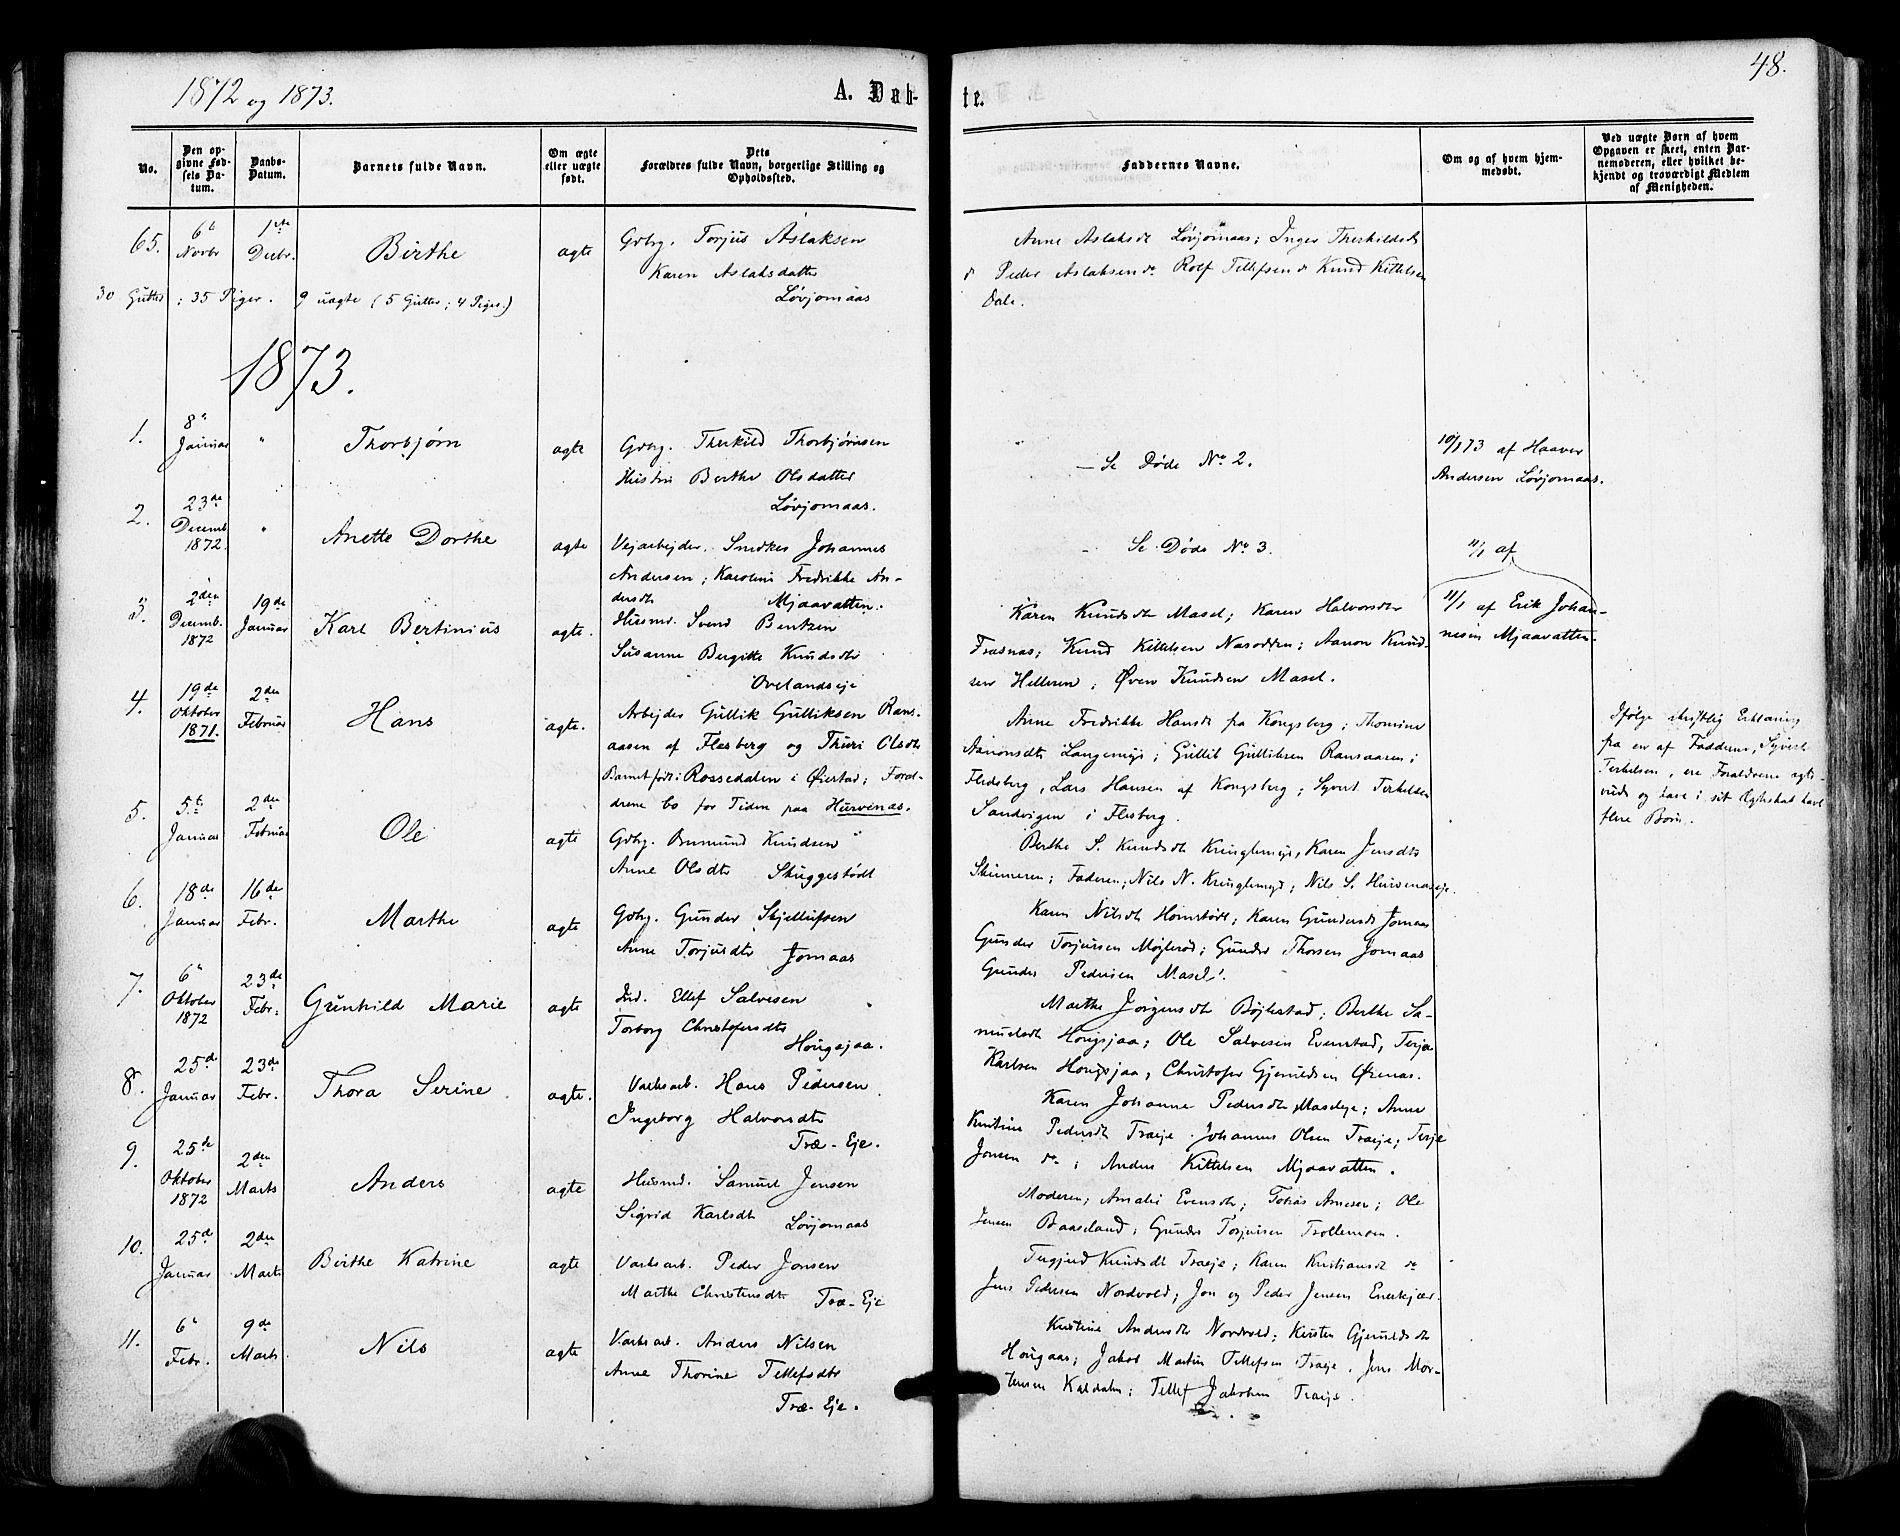 1872 og 1873.
A. Døb-
te.
48.
No.
Den op-
givne Fød-
sels Da-
tum.
Daabs-
Datum.
Barnets fulde Navn.
Om ægte
eller uægte
født.
Dets
Forældres fulde Navn, borgerlige Stilling og
Opholdssted.
Faddernes Navne.
Om og af hvem hjem-
medøbt.
Ved uægte Børn af hvem
Opgaven er skeet, enten Bar-
nemoderen, eller hvilket be-
kjendt og troværdigt Medlem
af Menigheden.
65.
6t
Novbr
1ste
Decbr.
Birthe
ægte
Gdbrg. Torjus Aslaksen
Karen Aslaksdatter
Løvjomaas
Anne Aslaksdt Løvjomaas; Inger Therkildsdt
do Peder Aslaksen do Rolf Tellefsen do Knud Kittelsen
Dale.
30 Gutter; 35 Piger. 9 uægte (5 Gutter; 4 Piger.)
1873.
1.
8de
Januar
"
Thorbjørn
ægte
Gdbrg. Therkild Thorbjørnsen
Hustru Berthe Olsdatter
Løvjomaas.
— Se Døde No 2.
10/1 73 af Haaver
Andersen Løvjomaas.
2.
23de
Decemb.
1872.
"
Anette Dorthe
ægte
Vejarbejder. Snedker Johannes
Andersen; Karoline Fredrikke An-
dersdt Mjaavatten.
- Se Døde No 3.
11/1 af
11/1 af Erik Johan-
nesen Mjaavatten
3.
2den
Decemb.
1872
19de
Januar
Karl Bertinius
ægte.
Husmd. Svend Bentzen
Susanne Bergitte Knudsdtr
Ovelandseje
Karen Knudsdt Masel; Karen Halvorsdtr
Frasnas; Knud Kittelsen Nasodden; Aanon Knud-
sen Helleren; Øven Knudsen Masel.
4.
19de
Oktober
1871.
2den
Februar
Hans
ægte.
Arbejder Gullik Gulliksen Rans-
aasen af Flesberg og Thuri Olsdtr
Barnet født i Rossedalen i Øiestad; Foræl-
drene bo for Tiden paa Hurvenas.
Anne Fredrikke Hansdt fra Kongsberg; Thomine
Aanonsdtr Langemyr; Gullik Gulliksen Ransaasen i
Flesberg, Lars Hansen af Kongsberg; Syvert Terkelsen
Sandvigen i Flesberg.
Ifølge skriftlig Erklæring
fra en af Fadderne, Syvert
Terkelsen, ere Forældrene ægte-
viede og have i sit Ægteskab havt
flere Børn.
5.
5t
Januar
2den
Februar
Ole
ægte
Gdbrg. Knudsen
Anne Olsdtr Skuggestødt
Berthe S. Knudsdt Kringlemyr, Karen Jensdtr
Skinneren; Faderen; Nils N. Kringlemyr; Nils S. Hurvenaseje.
6.
18de
Januar
16de
Febr.
Marthe
ægte
Gdbrg. Gunder Skjellufsen
Anne Torjusdtr Jomaas
Karen Nilsdt Homstødt; Karen Gundersdt Jomaas
Gunder Torjussen Møglerød; Gunder Thorsen Jomaas
Gunder Pedersen Masel.
7.
6t
Oktober
1872
23de
Febr.
Gunhild Marie
ægte
Ind. Ellef Salvesen
Torborg Christofersdtr
Hougsjaa.
Marthe Jørgensdtr Bøjlestad; Berthe Sa-
muelsdt Hougsjaa; Ole Salvesen Evenstad, Terje
Karlsen Hougsjaa; Christofer Gjermundsen Ørenas.
8.
25de
Januar
23de
Febr.
Thora Serine
ægte.
Værksarb. Hans Pedersen
Ingeborg Halvorsdtr
Træ-Eje.
Karen Johanne Pedersdtr Maseleje; Anne
Kristine Pedersdt Træeje. Johannes Olsen Træeje; Terje
Jonsen do; Anders Kittelsen Mjaavatten.
9.
25de
Oktober
1872
2den
Marts
Anders
ægte
Husmd. Samuel Jensen
Sigrid Karlsdtr Løvjomaas
Moderen; Amalie Evensdtr; Tobias Arnesen; Ole
Jensen Baaseland; Gunder Torjussen Trollemoen.
10.
25de
Januar
2den
Marts
Birthe Katrine
ægte
Værksarb. Peder Jonsen
Marthe Christensdtr Træ-Eje
Tergjerd Knudsdt Træeje; Karen Kristiansdt do
Jens Pedersen Nordvold; Jon og Peder Jensen Enerkjær.
11.
6t
Febr.
9de
Marts
Nils
ægte
Værksarb. Anders Nilsen
Anne Thorine Tellefsdtr
Træ-Eje.
Kristine Andersdtr Nordvold; Kirsten Gjermundsdtr
Hougaas; Jakob Martin Tellefsen Træeje. Jens Mor-
tensen Kaldalen; Tellef Jakobsen Træeje.